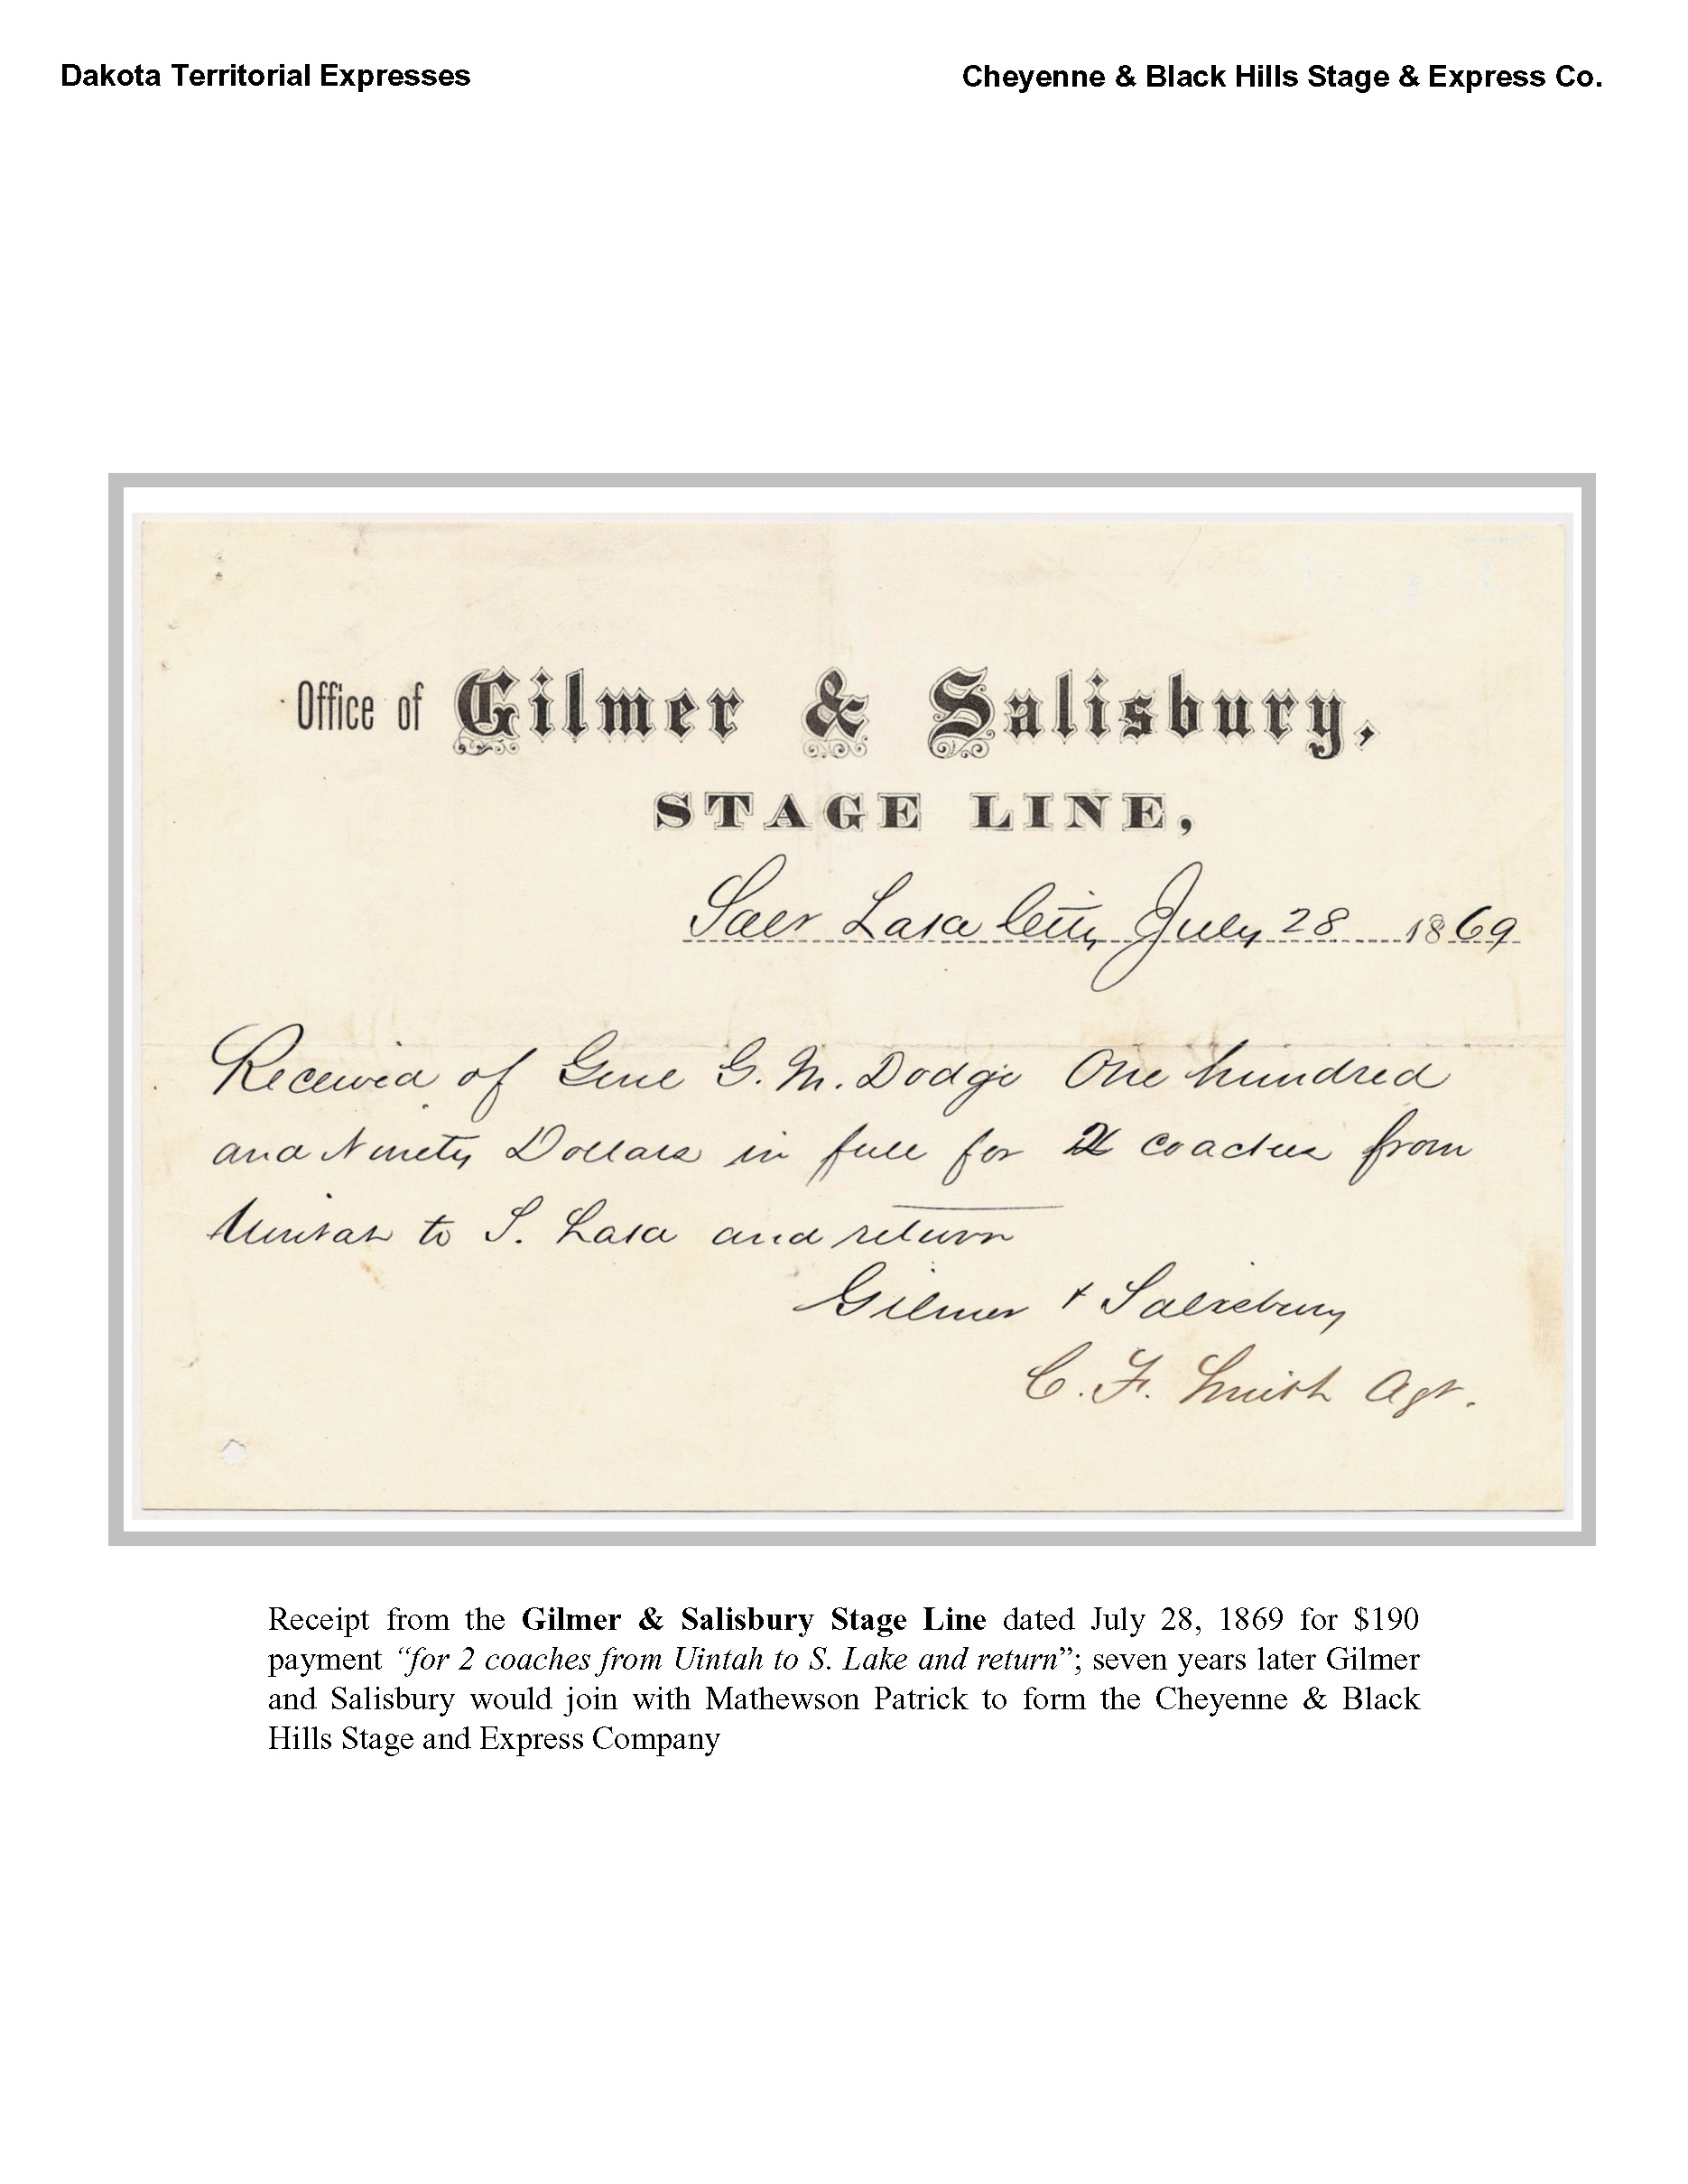 Dakota Territorial Expresses
Cheyenne & Black Hills Stage & Express Co.
Office of Gilmer & Salisbury,
STAGE LINE,
Salt Lake City July 28 1869
Received of Genl G. M. Dodge One hundred
and Ninety Dollars in full for 2 coaches from
Uintah to S. Lake and return
Gilmer & Salisbury
C. F. Smith Agt.
Receipt from the Gilmer & Salisbury Stage Line dated July 28, 1869 for $190
payment “for 2 coaches from Uintah to S. Lake and return”; seven years later Gilmer
and Salisbury would join with Mathewson Patrick to form the Cheyenne & Black
Hills Stage and Express Company